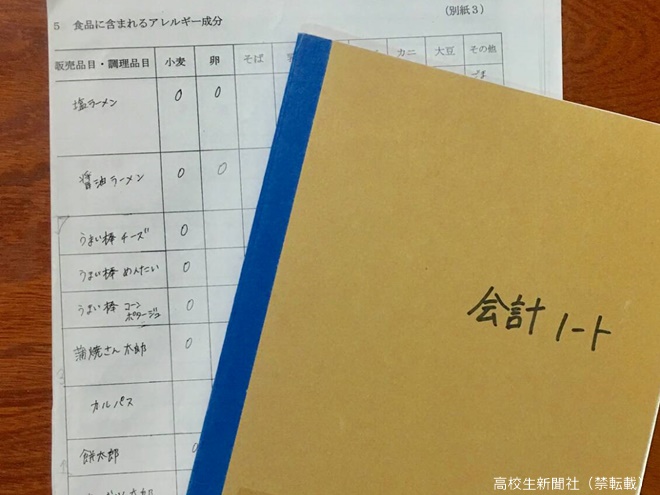 (別紙3)
5 食品に含まれるアレルギー成分
販売品目・調理品目 小麦 卵 そば カニ 大豆 その他
塩ラーメン 0 0 ごま
醤油ラーメン 0 0
うまい棒 チーズ 0
うまい棒 めんたい 0
うまい棒 コーン 0
ポタージュ
蒲焼さん太郎 0
カルパス
餅太郎 0
会計ノート
高校生新聞社(禁転載)